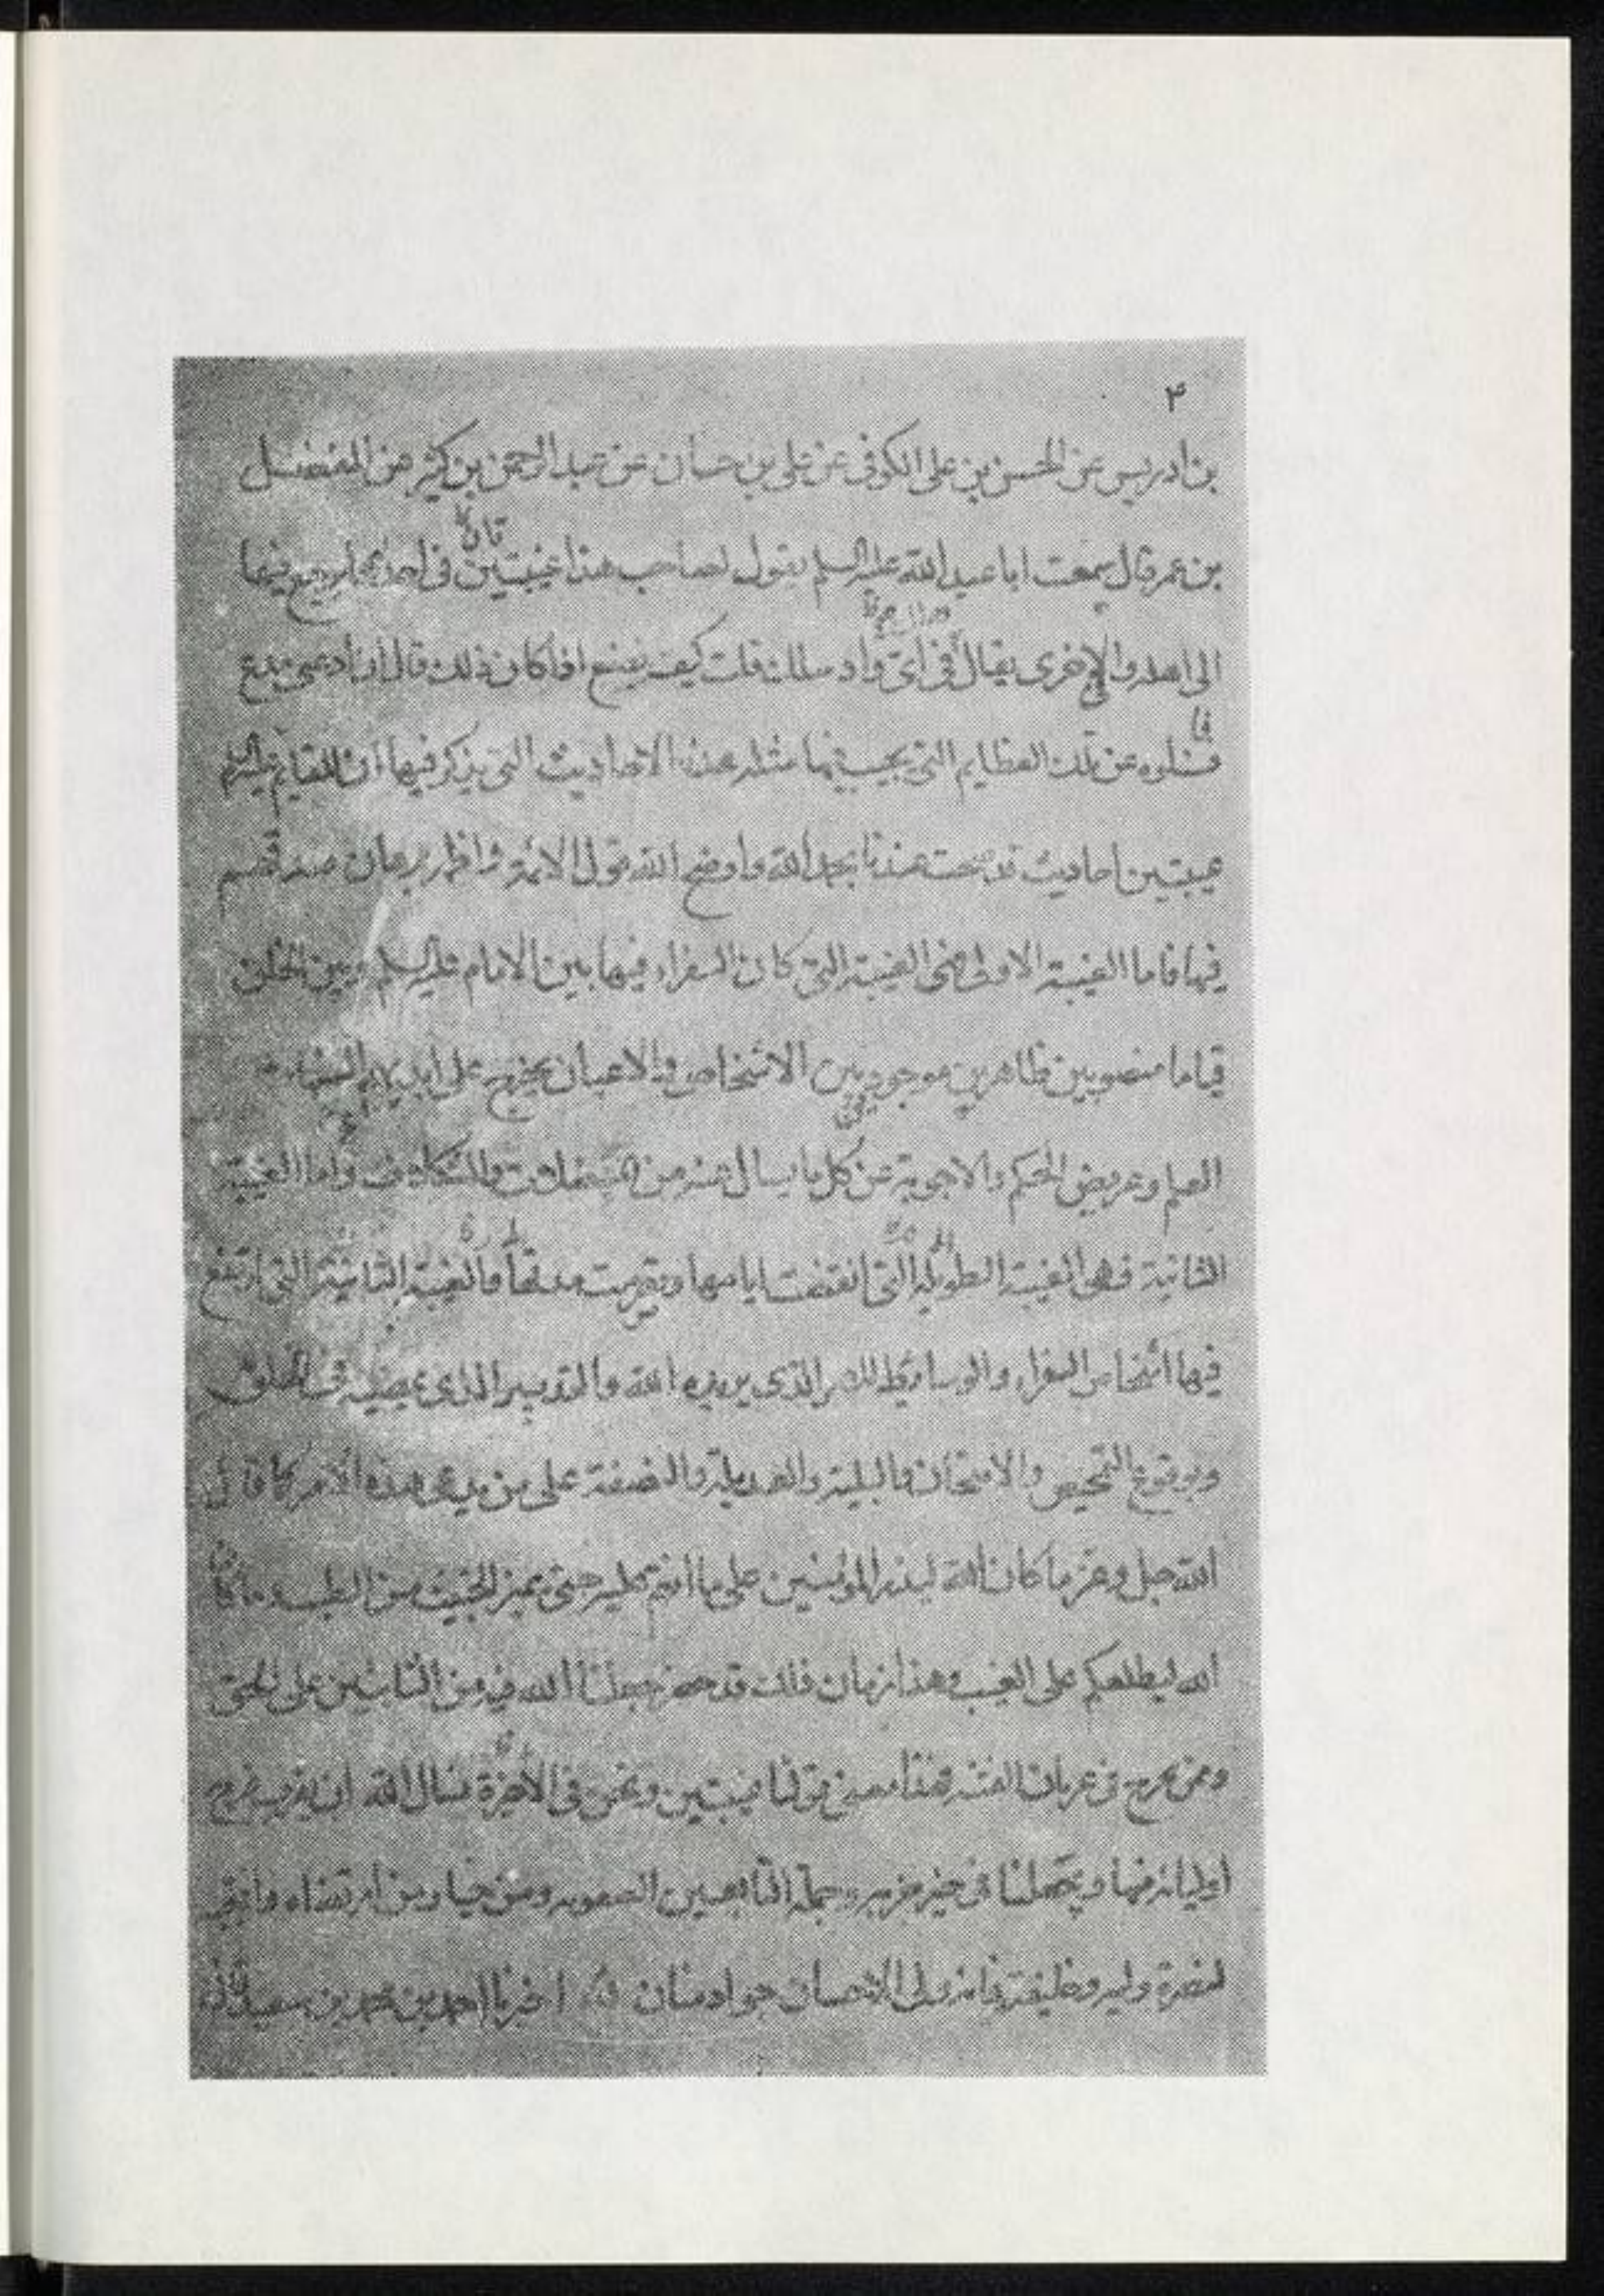 ٣
بن ادريس عن الحسن بن على الكوفى عن على بن حسان عن عبد الرحمن بن كثير عن المفضل
بن عمر قال سمعت ابا عبد الله عليه السلم يقول لصاحب هذا غيبتين فى احديهما يرجع فيها
الى اهله والاخرى يقال فى اى واد سلك قلت كيف نصنع اذا كان ذلك قال ان ادعى مدع
فسئلوه عن تلك العظايم التى يجيب فيها مثله هذه الاحاديث التى يذكر فيها ان للقايم عليه السلم
غيبتين احاديث قد صحت عندنا بحمد الله واوضح الله قول الائمة واظهر برهان صدقهم
فيها فاما الغيبة الاولى فهى الغيبة التى كان السفراء فيها بين الامام عليه السلم وبين الخلق
قياما منصوبين ظاهرين موجودين الاشخاص والاعيان يخرج على ايديهم الشفاء من
العلم وعويص الحكم والاجوبة عن كل ما يسال عنه من المعضلات والمشكلات واما الغيبة
الثانية فهى الغيبة الطويلة التى انقضت ايامها وتصرمت مدتها والغيبة الثانية التى ارتفع
فيها اشخاص السفراء والوسايط للامر الذى يريده الله والتدبير الذى يمضيه فى الخلق
وبوقوع التمحيص والامتحان والبلية والغربلة والتصفية على من يدعى هذا الامر كما قال
الله جل وعز ما كان الله ليذر المؤمنين على ما انتم عليه حتى يميز الخبيث من الطيب وما كان
الله ليطلعكم على الغيب وهذا زمان ذلك قد حضر جعلنا الله فيه من الثابتين على الحق
وممن لا يخرج فى غربال الفتنة فهذا معنى قولنا غيبتين ونحن فى الاخيرة نسال الله ان يقرب فرج
اوليائه منها ويجعلنا فى حيز خيرته وجملة التابعين لصفوته ومن خيار من ارتضاه وانتجبه
لنصرة وليه وخليفته فانه ولى الاحسان جواد منان اخبرنا احمد بن محمد بن سعيد قال